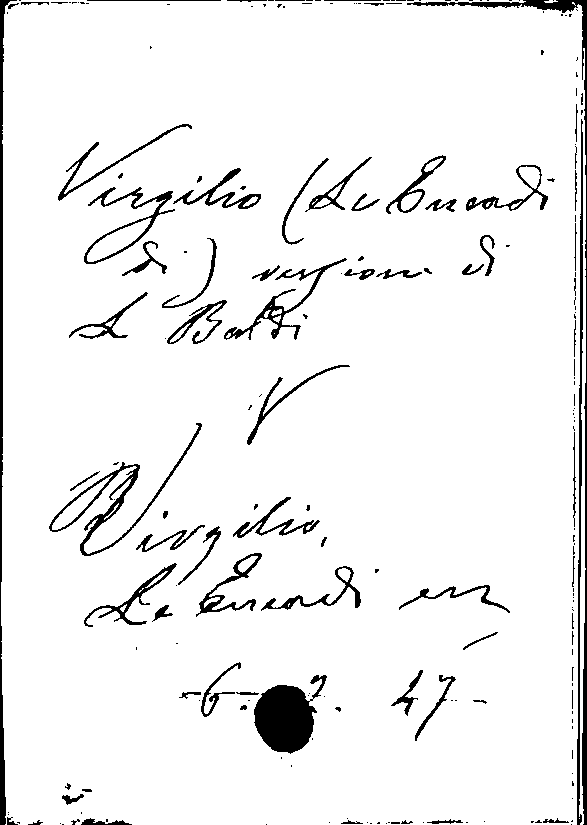 Virgilio (Le Eneadi
di) versione di
L Baldi
V
Virgilio,
Le Eneadi
6. 2. 47-